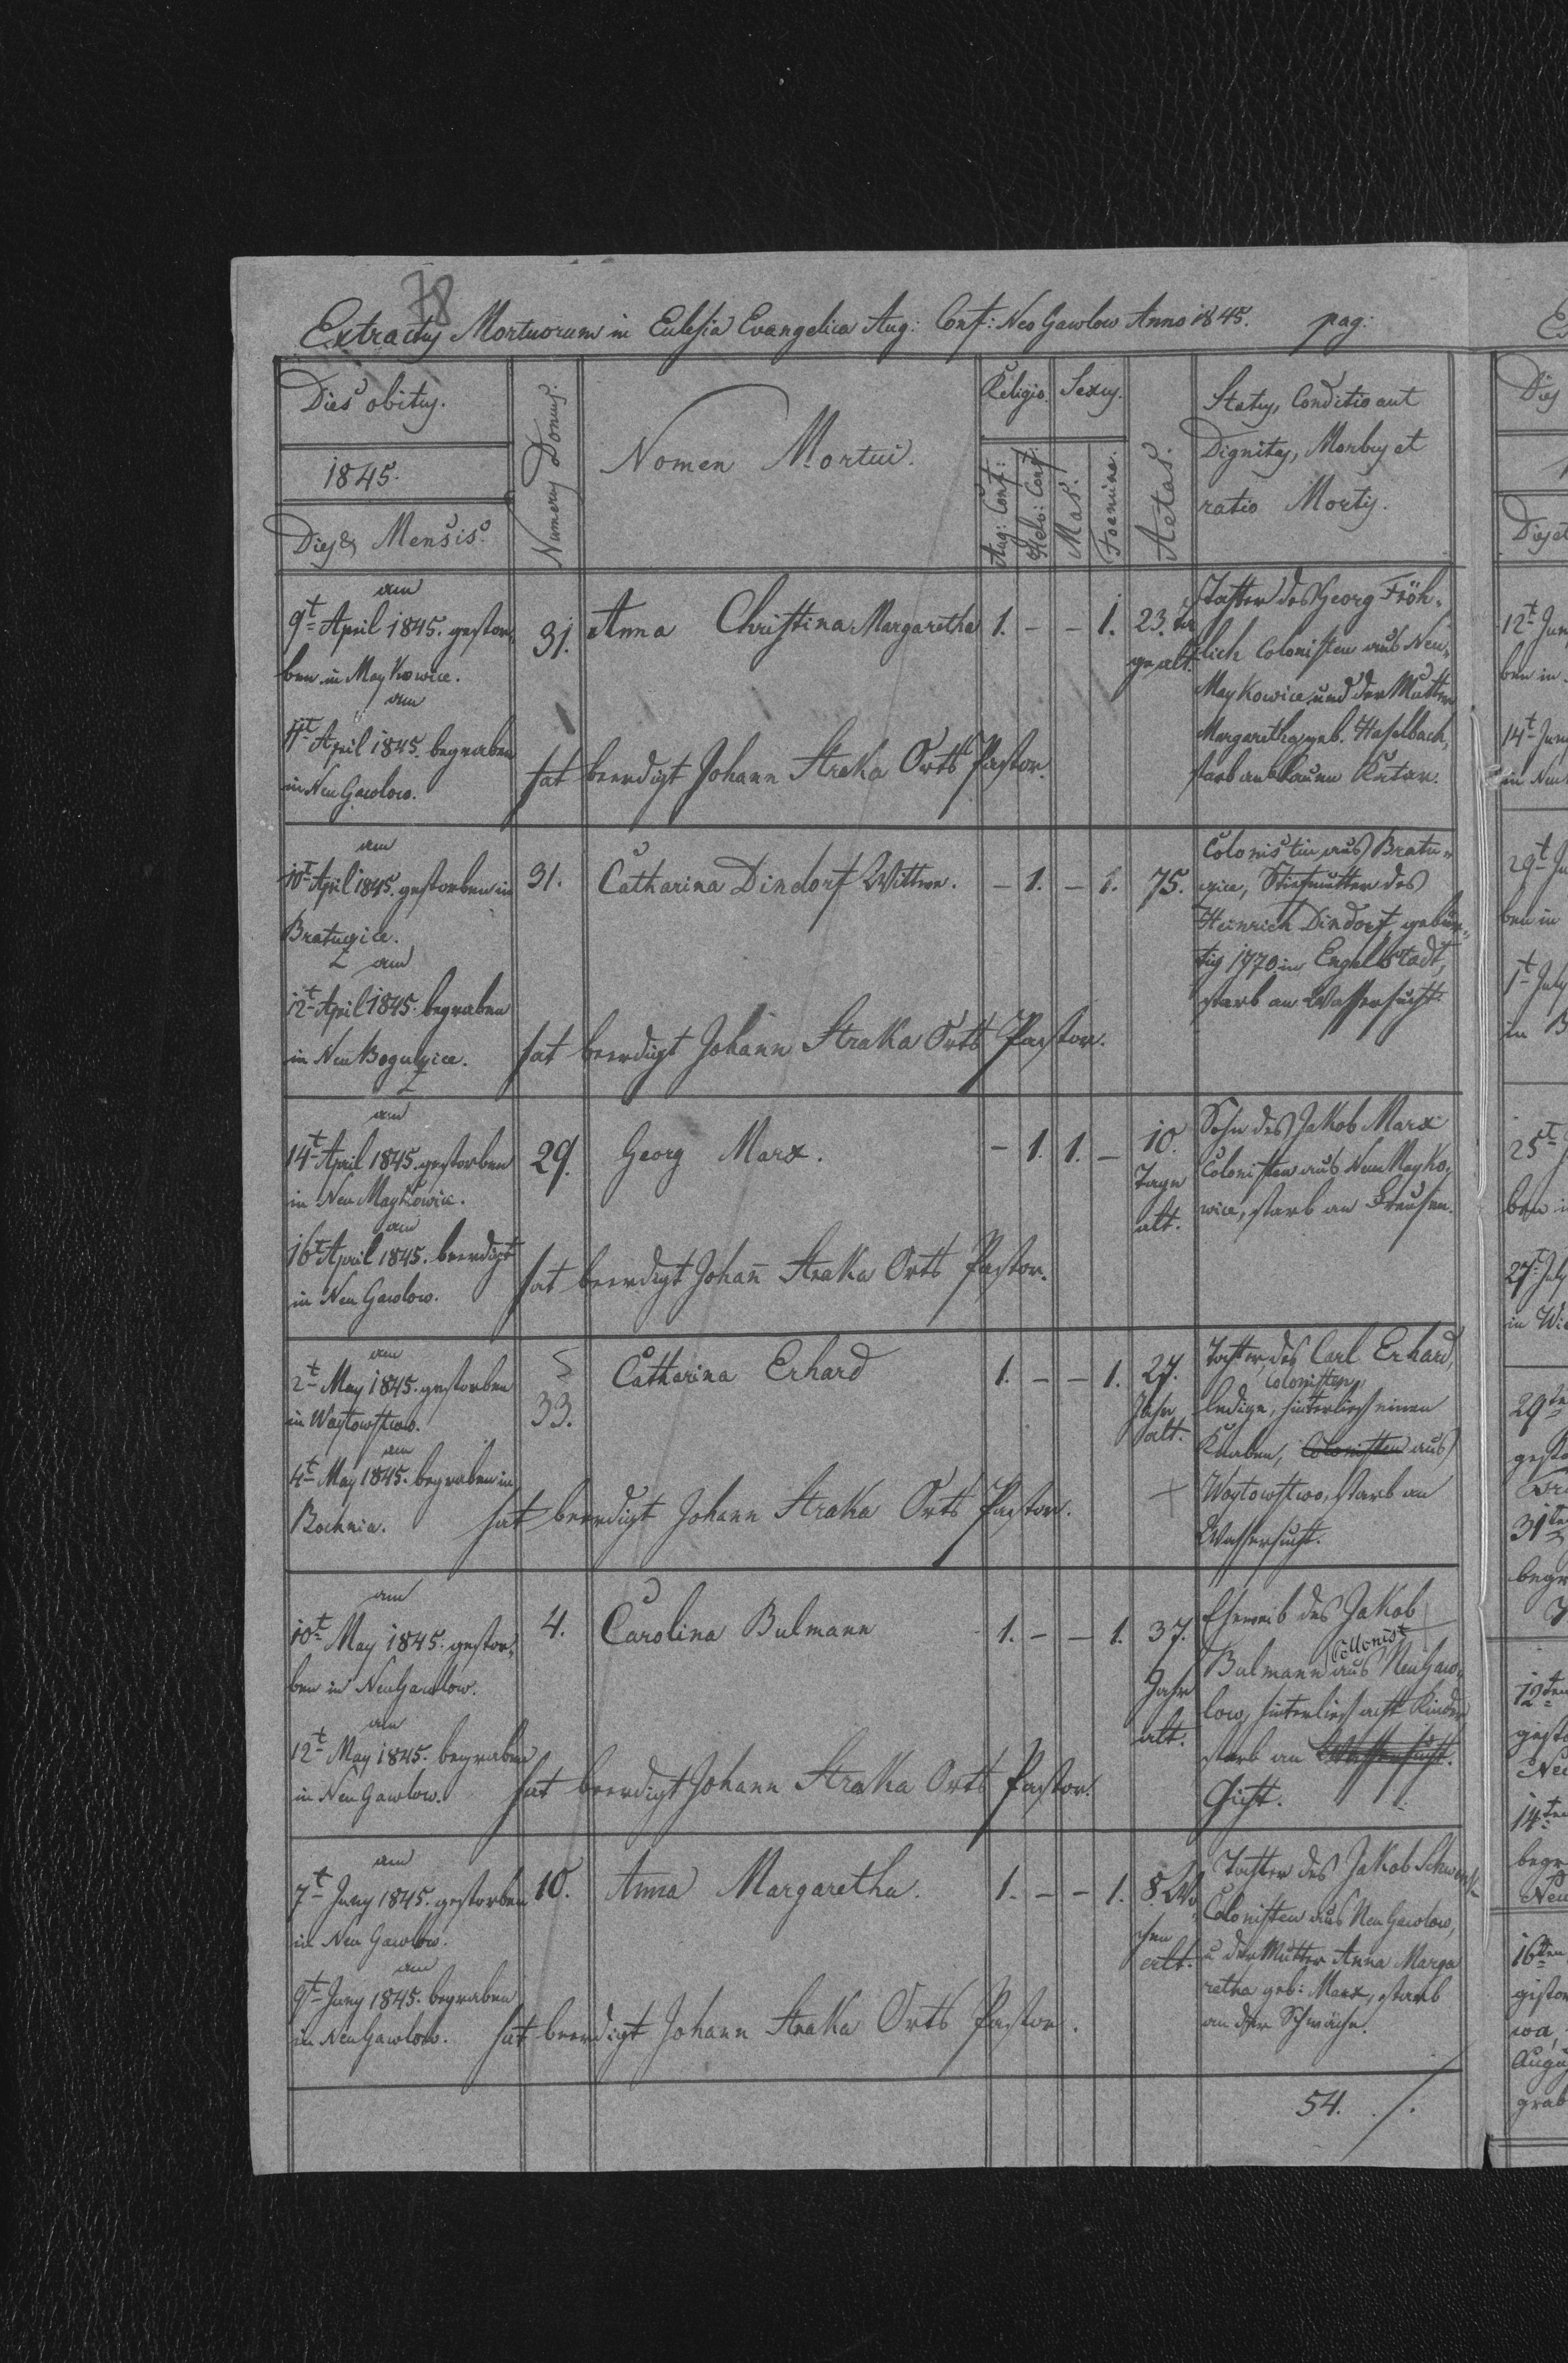 78
Extractus Mortuorum in Eclesia Evangelica Aug: Conf: Neo Gawlow Anno 1845. pag:
Dies obitus.
1845.
Dies & Mensis.
Numerus Domus.
Nomen Mortui.
Religio.
Aug: Conf:
Helv: Conf:
Sexus.
Mas.
Foemina.
Aetas.
Status, Conditio aut
Dignitas, Morbus et
ratio Mortis.
am
9t April 1845. gestor-
ben in Maykowice.
am
11t April 1845. begraben
in Neu Gawlow.
31.
Anna Christina Margaretha
1. – – 1.
23. Ta
ge alt.
Tochter des Georg Fröh-
lich Colonisten aus Neu-
Maykowice und der Mutter
Margaretha geb. Haselbach,
starb am Katar.
hat beerdigt Johann Straka Orts Pastor.
am
10t April 1845. gestorben in
Bratucice.
am
12t April 1845. begraben
in Neu Bogucice.
31.
Catharina Dindorf Wittwe.
– 1. – 1.
75.
Colonistin aus Bratu-
cice, Stiefmutter des
Heinrich Dindorf, gebür-
tig 1770 in Engelstadt,
starb an Wassersucht.
hat beerdigt Johann Straka Orts Pastor.
am
14t April 1845. gestorben
in Neu Maykowice.
am
16t April 1845. beerdigt
in Neu Gawlow.
29.
Georg Marx.
– 1. 1. –
10.
Tage
alt.
Sohn des Jakob Marx
Colonisten aus Neu Mayko-
wice, starb an Freusen.
hat beerdigt Johan̄ Straka Orts Pastor.
am
2t May 1845. gestorben
in Woytowstwo.
am
4t May 1845. begraben in
Bochnia.
33.
Catharina Erhard
1. – – 1.
27.
Jahr
alt.
Tochter des Carl Erhard,
Colonisten,
ledige, hinterließ einen
Knaben, Colonisten aus
Woytowstwo, starb an
Wassersucht.
hat beerdigt Johann Straka Orts Pastor.
am
10t May 1845. gestor-
ben in Neu Gawlow.
am
12t May 1845. begraben
in Neu Gawlow.
4.
Carolina Bulmann
1. – – 1.
37.
Jahr
alt.
Eheweib des Jakob
Collonist
Bulmann aus Neu Gaw-
low, hinterließ acht Kinder
starb an Wassersucht.
Gicht.
hat beerdigt Johann Straka Orts Pastor.
am
7t Juny 1845. gestorben
in Neu Gawlow.
am
9t Juny 1845. begraben
in Neu Gawlow.
10.
Anna Margaretha.
1. – – 1.
8. Wo-
chen
alt.
Tochter des Jakob Schwenk
Colonisten aus Neu Gawlow,
u der Mutter Anna Marga
retha geb: Marx, starb
an der Schwäche.
hat beerdigt Johann Straka Orts Pastor.
54. ./.
Dies
Dies et
12t Jun
ben in
14t Jun
in Neu
29t Ju
ben in
1t July
in B
25t
ben
27t July
in Wi
29ten
31ten
begr
12ten
14ten
Neu
16ten
Augu
grab